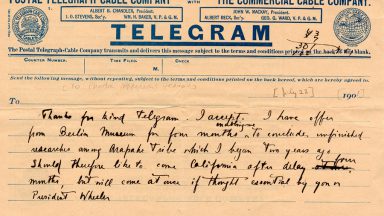 POSTAL TELEGRAPH-CABLE COMPANY WITH THE COMMERCIAL CABLE COMPANY.
ALBERT B. CHANDLER, PRESIDENT. JOHN W. MACKAY, PRESIDENT.
I. O. STEVENS, Sec'y. WM. H. BAKER, V. P. & G. M. ALBERT BECK, Sec'y. GEO. G. WARD, V. P. & G. M.
TELEGRAM
43
The Postal Telegraph-Cable Company transmits and delivers this message subject to the terms and conditions printed on the back
COUNTER NUMBER. TIME FILED. CHECK.
Send the following message, without repeating, subject to the terms and conditions printed on the back hereof, which are hereby agreed to.
[July 23] 190
To
Thanks for kind telegram. I accept. I have offer
from Berlin Museum for four months to conclude unfinished
researches among Arapaho Tribe which I began two years ago.
Should therefore like to come California after delay four
months, but will come at once if thought essential by you or
President Wheeler